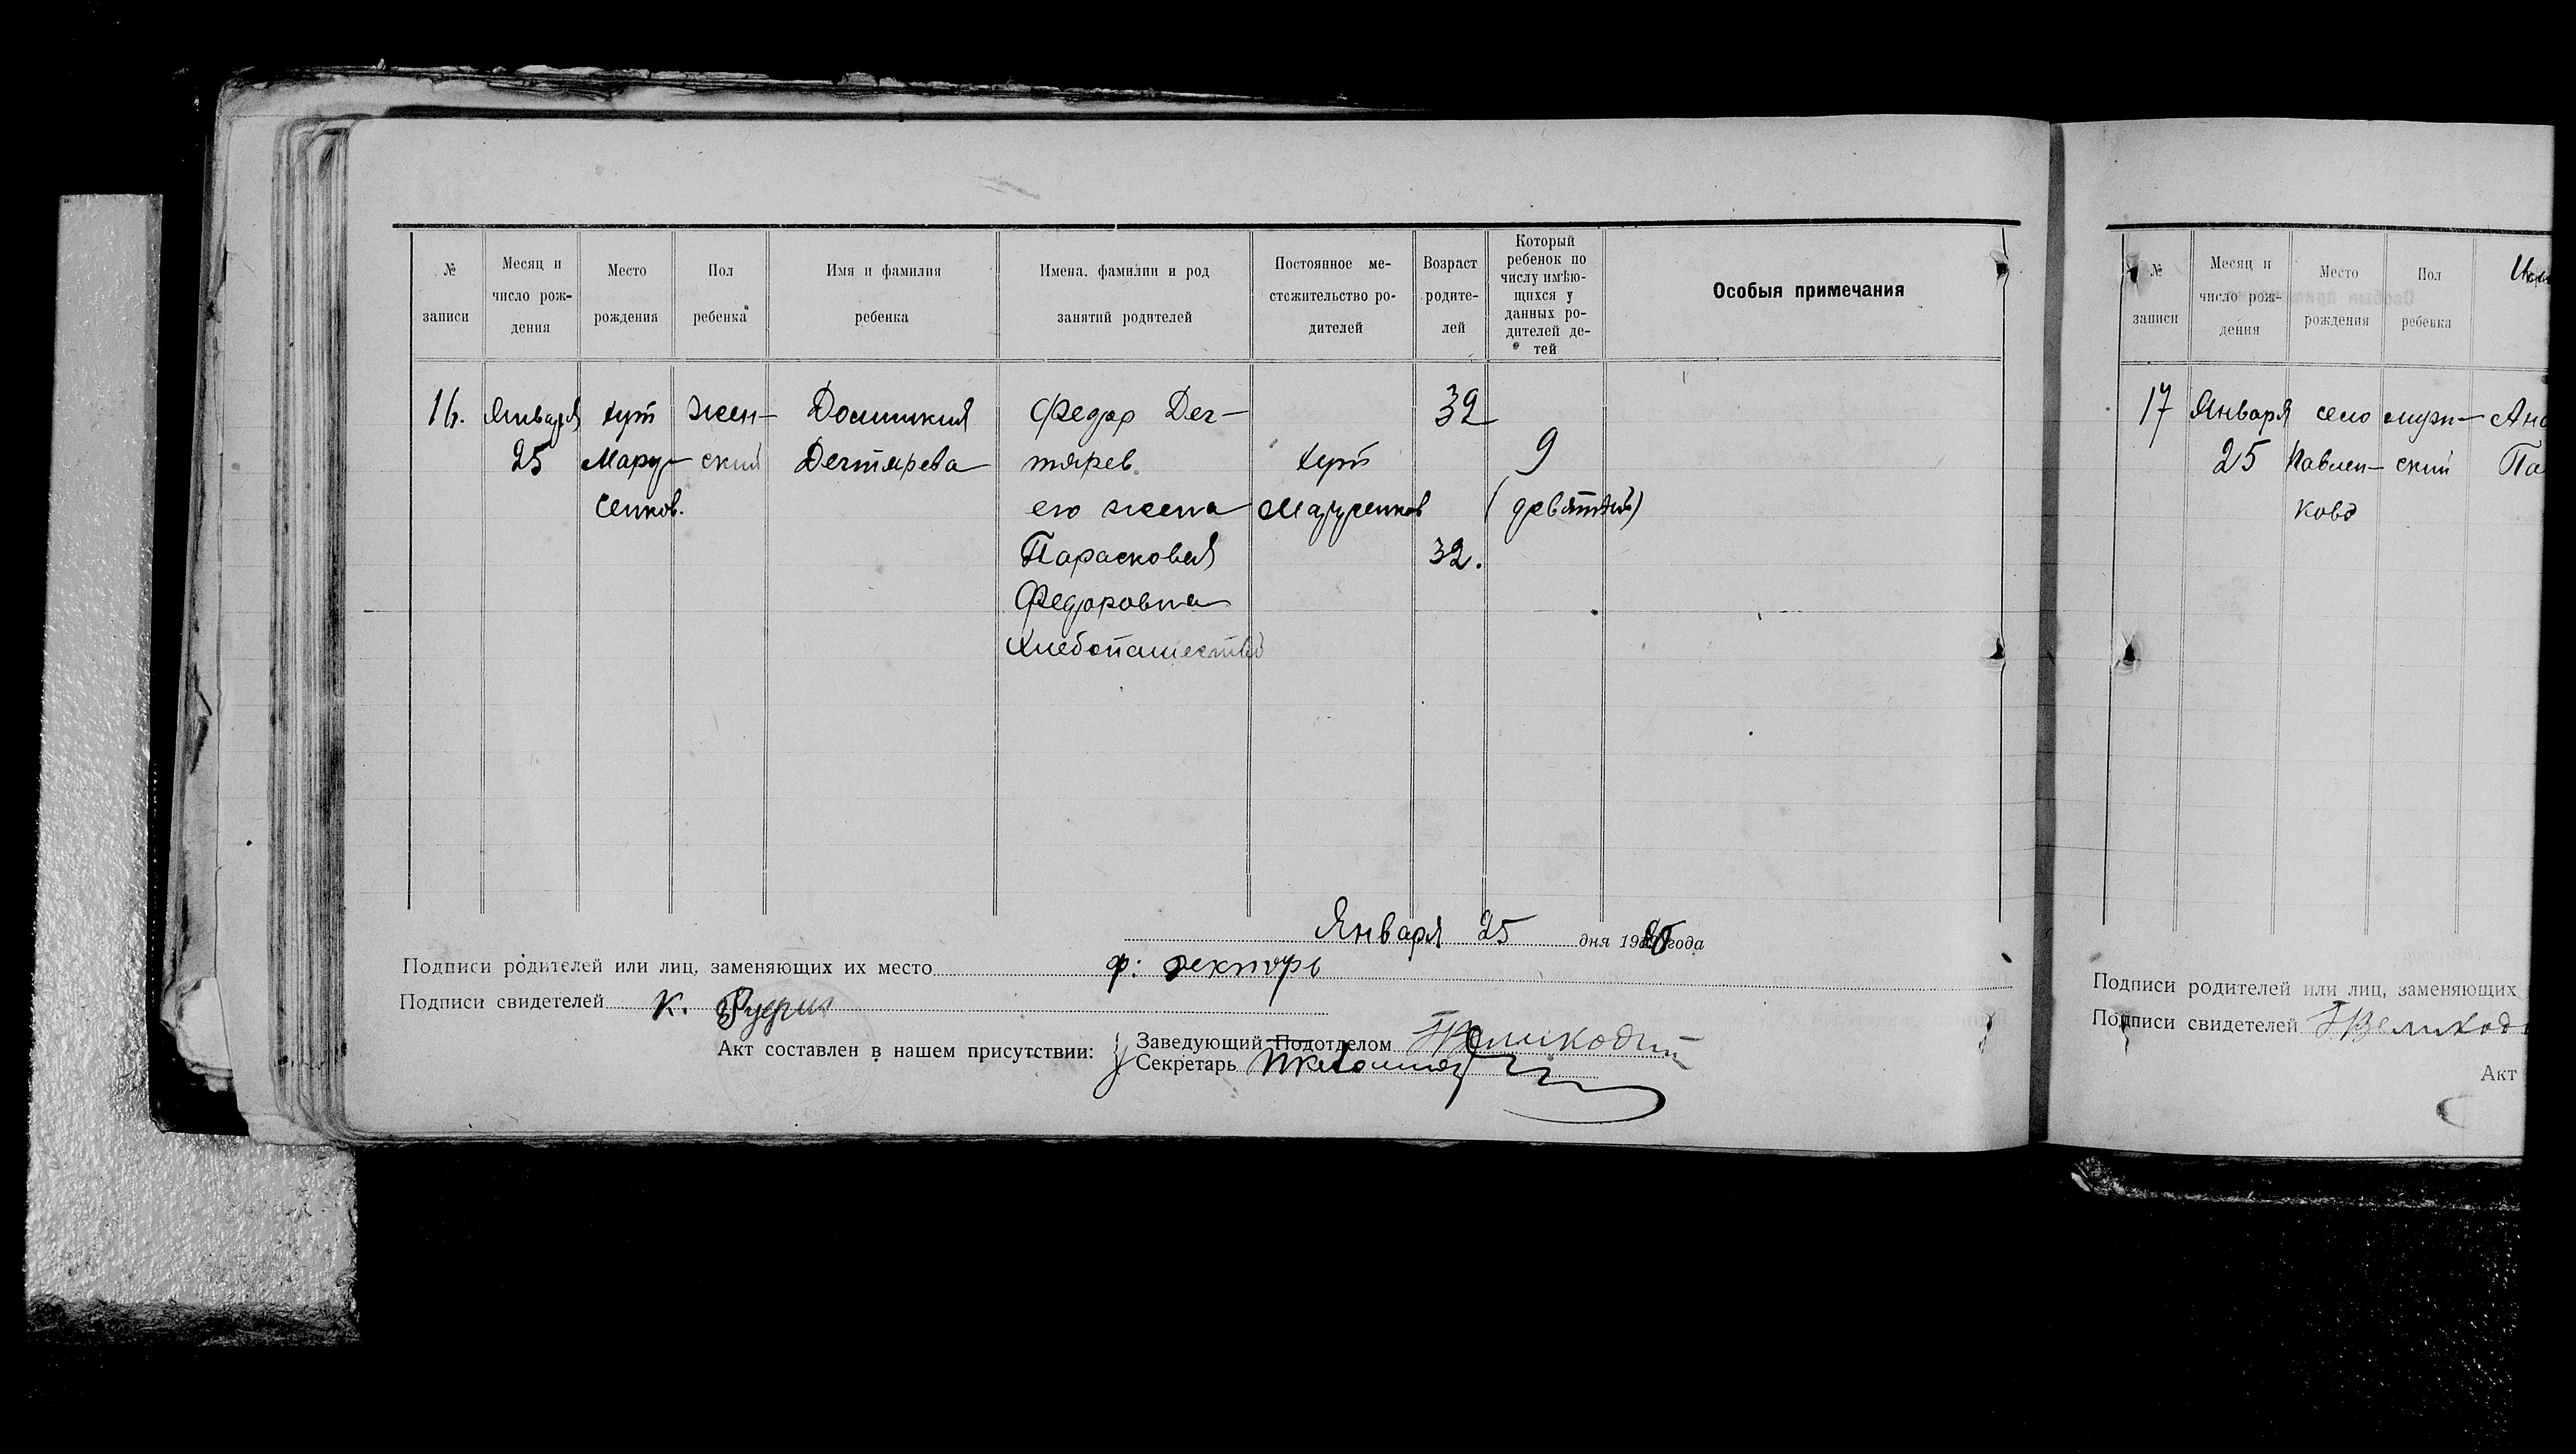 № записи
Месяц и число рож-дения
Место рождения
Пол ребенка
Имя и фамилия ребенка
Имена. фамилии и род занятий родителей
Постоянное ме-стожительство ро-дителей
Возраст родите-лей
Который ребенок по числу имѣю-щихся у данных ро-дителей де-тей
Особыя примечания
16.
Января
25
хут
Мару-
сенков.
жен-
ский
Домникия
Дегтярева
Федор Дег-
тярев
его жена
Парасковия
Федоровна
хлебопашество
хут
32
32.
9
(девятый)
Января 25 дня 19 года
Подписи родителей или лиц, заменяющих их место
Подписи свидетелей К.
Акт составлен в нашем присутствии:
Заведующий Подотделом
Секретарь
№ записи
Месяц и число рож-дения
Место рождения
Пол ребенка
17
Января
25
село
Павлен-
ково
муж-
ский
Подписи родителей или лиц, заменяющих
Подписи свидетелей
Акт